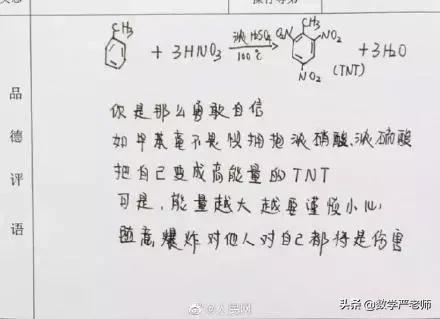 CH₃ + 3HNO₃ 浓H₂SO₄ 100℃ CH₃ O₂N NO₂ NO₂ (TNT) + 3H₂O
品德评语
你是那么勇敢自信
如甲苯毫不畏惧拥抱浓硝酸、浓硫酸
把自己变成高能量的TNT
可是,能量越大越要谨慎小心
随意爆炸对他人对自己都将是伤害
@人民网
头条@数学严老师